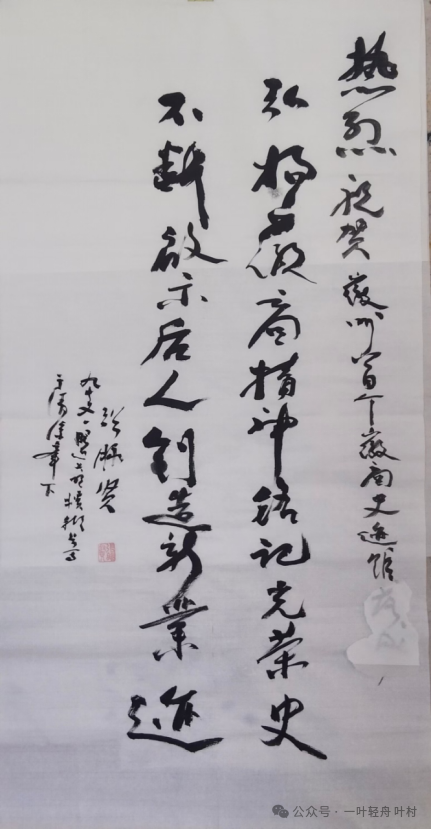 热烈祝贺徽州首个徽商史迹馆落成
弘扬徽商精神铭记光荣史
不断启示后人创造新业迹
彭
九十又一
公众号·一叶轻舟叶村